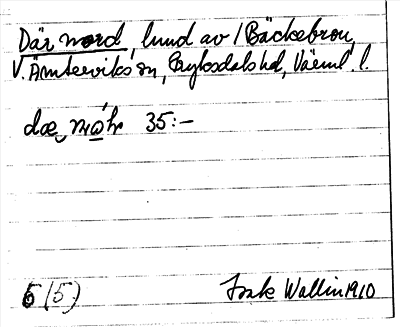 Där nord, lund av /Bäckebron,
V. Ämterviks sn, Fryksdals hd, Värml. l.
dæ nɷhr 35:-
6 (5) Isak Wallin 1910